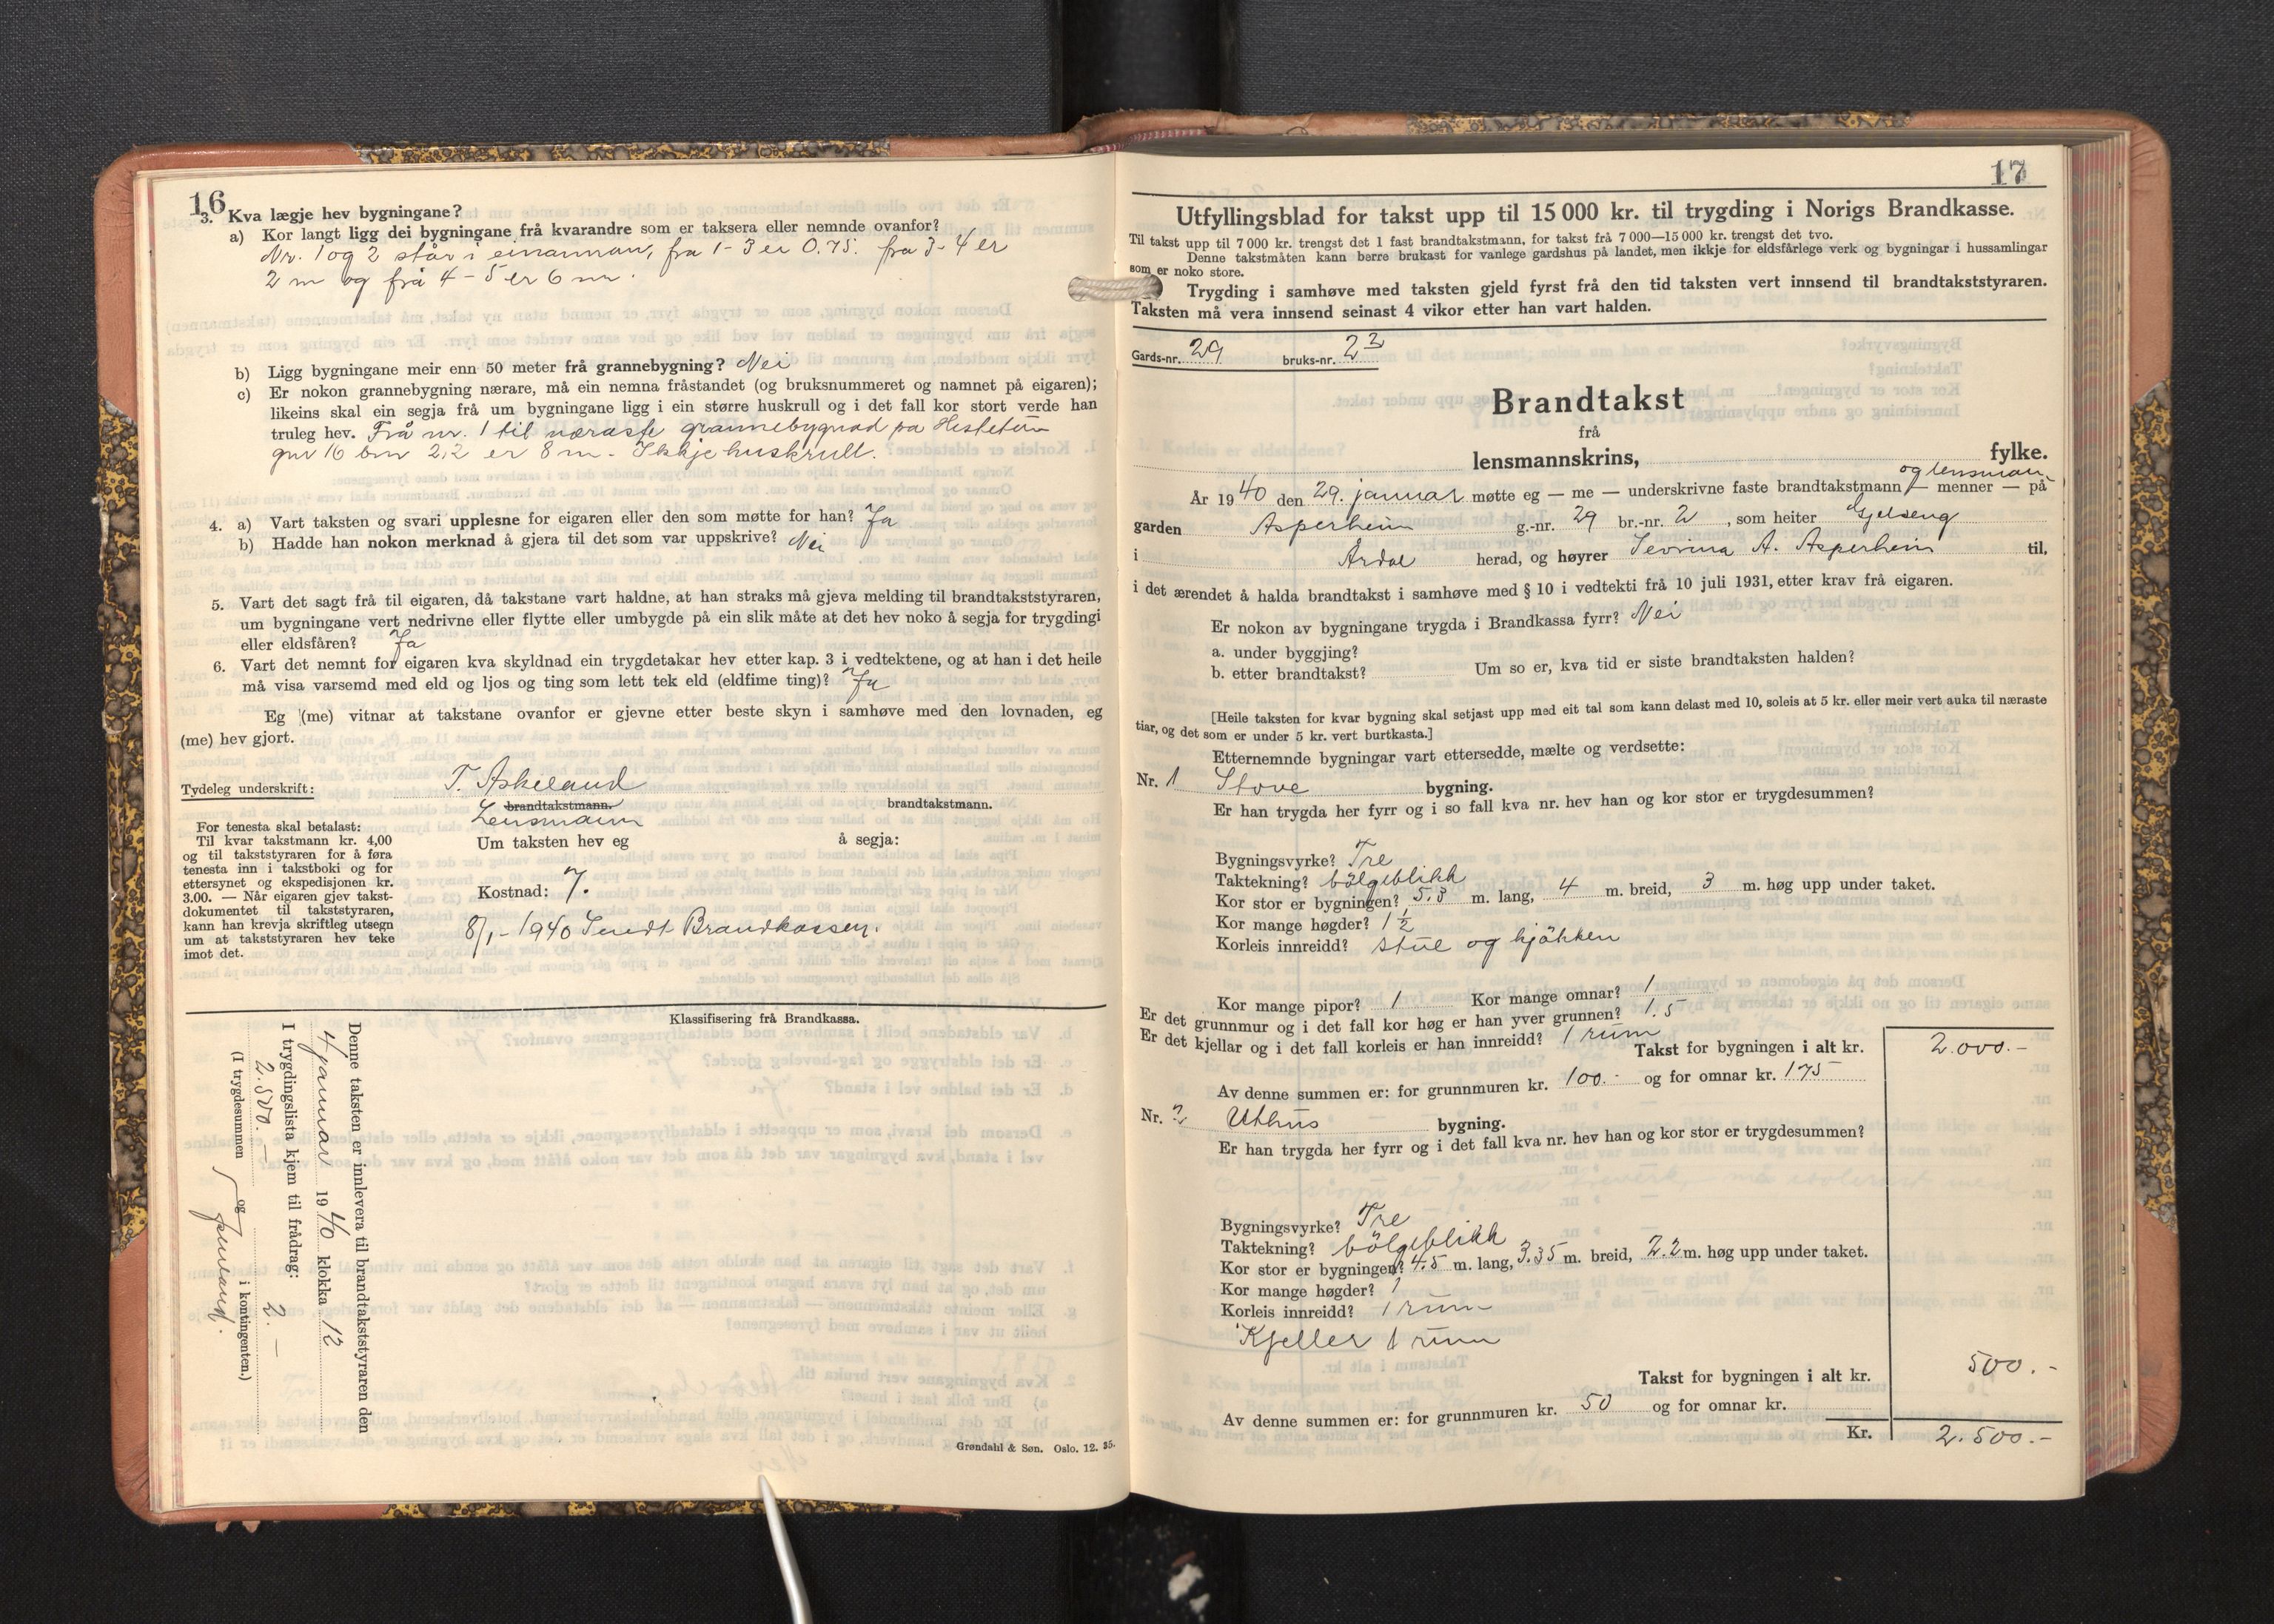 16
3. Kva lægje hev bygningane?
a) Kor langt ligg dei bygningane frå kvarandre som er taksera eller nemnde ovanfor?
Nr. 1 og 2 står i einannan, fra 1-3 er 0.75. fra 3-4 er
2 m og frå 4-5 er 6 m.
b) Ligg bygningane meir enn 50 meter frå grannebygning? Nei
c) Er nokon grannebygning nærare, må ein nemna fråstandet (og bruksnummeret og namnet på eigaren);
likeins skal ein segja frå um bygningane ligg i ein større huskrull og i det fall kor stort verde han
truleg hev. Frå nr. 1 til næraste grannebygnad pa
gnr 16 bnr 2,2 er 8 m - Ikkje huskrull.
4. a) Vart taksten og svari upplesne for eigaren eller den som møtte for han? Ja
b) Hadde han nokon merknad å gjera til det som var uppskrive? Nei
5. Vart det sagt frå til eigaren, då takstane vart haldne, at han straks må gjeva melding til brandtakststyraren,
um bygningane vert nedrivne eller flytte eller umbygde på ein slik måte at det hev noko å segja for trygdingi
eller eldsfåren? Ja
6. Vart det nemnt for eigaren kva skyldnad ein trygdetakar hev etter kap. 3 i vedtektene, og at han i det heile
må visa varsemd med eld og ljos og ting som lett tek eld (eldfime ting)? Ja
Eg (me) vitnar at takstane ovanfor er gjevne etter beste skyn i samhøve med den lovnaden, eg
(me) hev gjort.
Tydeleg underskrift: T. Askeland
brandtakstmann. brandtakstmann.
Lensmann
For tenesta skal betalast:
Til kvar takstmann kr. 4,00
og til takststyraren for å føra
tenesta inn i takstboki og for
ettersynet og ekspedisjonen kr.
3.00. — Når eigaren gjev takst-
dokumentet til takststyraren,
kann han krevja skriftleg utsegn
um at takststyraren hev teke
imot det.
Um taksten hev eg å segja:
Kostnad: 7.
8/1-1940 Sendt Brandkassen.
Klassifisering frå Brandkassa.
Denne taksten er innlevera til brandtakststyraren den
4 januar 1940 klokka 12
I trygdingslista kjem til frådrag:
2.500.— 2.—
(I trygdesummen og i kontingenten.)
Grøndahl & Søn. Oslo. 12. 35.
17
Utfyllingsblad for takst upp til 15 000 kr. til trygding i Norigs Brandkasse.
Til takst upp til 7 000 kr. trengst det 1 fast brandtakstmann, for takst frå 7 000—15 000 kr. trengst det tvo.
Denne takstmåten kann berre brukast for vanlege gardshus på landet, men ikkje for eldsfårlege verk og bygningar i hussamlingar
som er noko store.
Trygding i samhøve med taksten gjeld fyrst frå den tid taksten vert innsend til brandtakststyraren.
Taksten må vera innsend seinast 4 vikor etter han vart halden.
Gards-nr. 29 bruks-nr. 2
Brandtakst
frå
lensmannskrins, fylke.
og lensman
År 1940 den 29. januar møtte eg — me — underskrivne faste brandtakstmann — menner — på
garden Asperheim g.-nr. 29 br.-nr. 2, som heiter Gjelseng
i Årdal herad, og høyrer Sevrina A. Asperheim til,
i det ærendet å halda brandtakst i samhøve med § 10 i vedtekti frå 10 juli 1931, etter krav frå eigaren.
Er nokon av bygningane trygda i Brandkassa fyrr? Nei
a. under byggjing?
b. etter brandtakst? Um so er, kva tid er siste brandtaksten halden?
[Heile taksten for kvar bygning skal setjast upp med eit tal som kann delast med 10, soleis at 5 kr. eller meir vert auka til næraste
tiar, og det som er under 5 kr. vert burtkasta.]
Etternemnde bygningar vart ettersedde, mælte og verdsette:
Nr. 1 Stove bygning.
Er han trygda her fyrr og i so fall kva nr. hev han og kor stor er trygdesummen?
Bygningsvyrke? Tre
Taktekning? bölgeblikk
Kor stor er bygningen? 5.3 m. lang, 4 m. breid, 3 m. høg upp under taket.
Kor mange høgder? 1½
Korleis innreidd? stue og kjökken
Kor mange pipor? 1 Kor mange omnar? 1
Er det grunnmur og i det fall kor høg er han yver grunnen? 1.5
Er det kjellar og i det fall korleis er han innreidd? 1 rum
Takst for bygningen i alt kr. 2.000.-
Av denne summen er: for grunnmuren kr. 100.- og for omnar kr. 175
Nr. 2 Uthus bygning.
Er han trygda her fyrr og i det fall kva nr. hev han og kor stor er trygdesummen?
Bygningsvyrke? Tre
Taktekning? bölgeblikk
Kor stor er bygningen? 4.5 m. lang, 3.35 m. breid, 2.2 m. høg upp under taket.
Kor mange høgder? 1
Korleis innreidd? 1 rum
Kjeller 1 rum
Takst for bygningen i alt kr. 500.-
Av denne summen er: for grunnmuren kr. 50 og for omnar kr.
Kr. 2.500.-